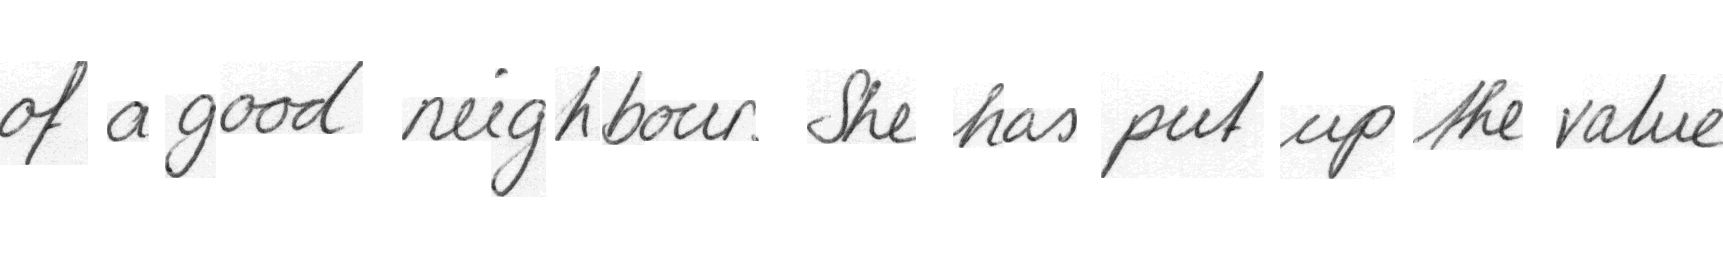 of a good neighbour. She has put up the value